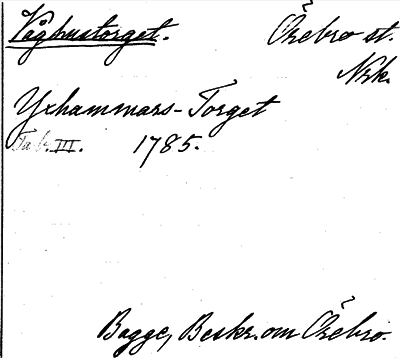 Våghustorget. Örebro st.
Nrk.
Yxhammars-Torget
Tab. III. 1785.
Bagge, Beskr. om Örebro.